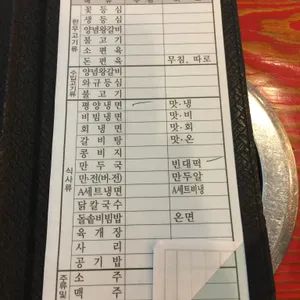 꽃 등 심
생 등 심
양념왕갈비
불 고 기
소 편 육
돈 편 육 무침, 따로
한우고기류
양념왕갈비
와규등심
불 고 기
수입고기류
평양냉면 맛·냉
비빔냉면 맛·비
회 냉 면 맛·회
갈 비 탕 맛·온
콩 비 지
만 두 국 빈대떡
만·전(바·전) 만두알
A세트냉면 A세트비냉
닭칼국수
돌솥비빔밥 온면
육 개 장
사 리
공 기 밥
식사류
소 주
맥 주
주류및